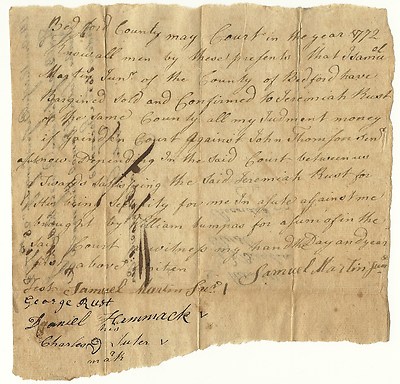 Bedford County may Court in the year 1772
Know all men by these presents that I Samol
Martin Junr of the County of Bedford have
Bargined Sold and Confirmed to Jeremiah Rust
of the Same County all my Judment money
if gaind in Court against John Thomson Senr
as now Depending In the Said Court between us
the Said Jeremiah Rust for
his being Security for me In a sute against me
brought by William bumpas for a sum of in the
Said Court witness my hand the Day and year
above
Samuel Martin Junr
Test Samuel Martin Snr
George Rust
Daniel Hammack
his
Charles Suter
mark